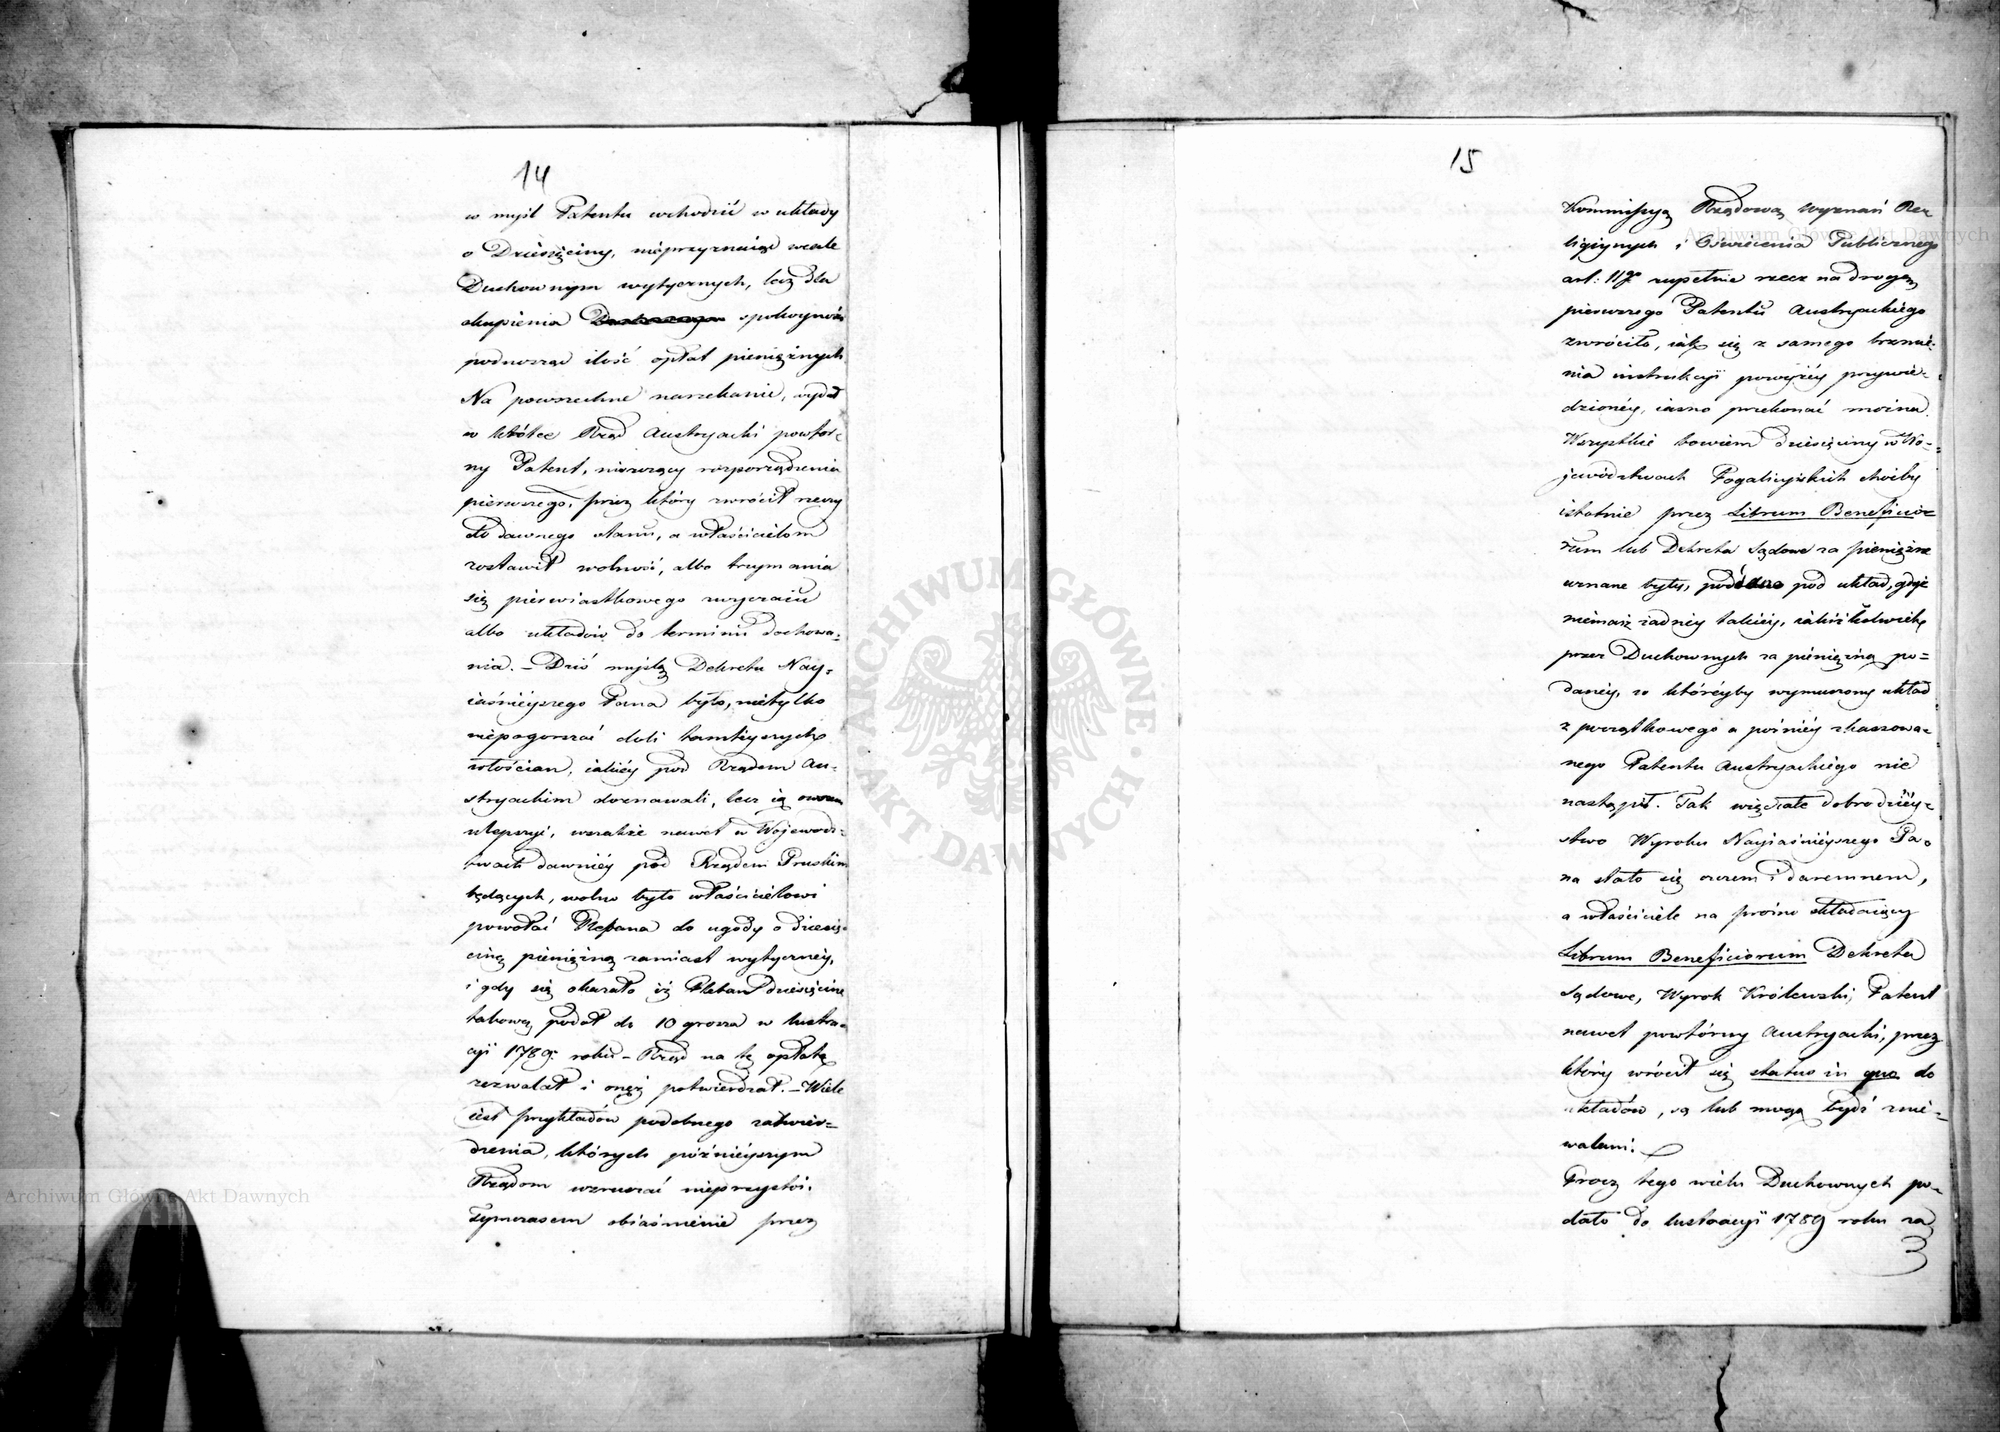 14
w myśl Patentu wchodzić w układy
o Dziesięciny, nieprzyznaiąc wcale
Duchownym wytycznych, lecz dla
okupienia spokoyności
podnosząc ilość opłat pieniężnych.
Na powszechne narzekanie, wydał
w krótce Rząd Austryacki powtór-
ny Patent, niszczący rozporządzenia
pierwszego, przez który zwrócił rzeczy
do dawnego stanu, a właścicielom
zostawił wolność, albo trzymania
się pierwiastkowego zwyczaiu
albo układów do terminu dochowa-
nia. – Dziś myślą Dekretu Nay-
iaśnieyszego Pana było, nietylko
niepogorszać doli tamteyszych
włościan, iakiéy pod Rządem Au-
stryackim doznawali, lecz ią owszem
ulepszyć, wszakże nawet w Wojewodz-
twach dawniéy pod Rządem Pruskim
będących, wolno było właścicielowi
powołać Plebana do ugody o dziesię-
cinę pieniężną zamiast wytycznéy,
i gdy się okazało iż Pleban dziesięcinę
takową podał do 10 grosza w lustra-
cyi 1789. roku – Rząd na tę opłatę
zezwalał i onęż potwierdzał. – Wiele
iest przykładów podobnego zatwier-
dzenia, których późnieyszym
Rządom wzruszać nieprzystoi.
Tymczasem obiaśnienie przez
15
Kommissyą Rządową Wyznań Re-
ligiynych i Oświecenia Publicznego
art: 11go zupełnie rzecz na drogę
pierwszego Patentu Austryackiego
zwróciło, iak się z samego brzmie-
nia instrukcyi powyżéy przywie-
dzionéy, iasno przekonać można.
Wszystkie bowiem dziesięciny w Wo-
jewództwach Pogalicyiskich choćby
istotnie przez Librum Beneficio-
rum lub Dekreta Sądowe za pieniężne
uznane były, pod układ, gdyż
niemasz żadnéy takiéy, iakiżkolwiek
przez Duchownych za pieniężną po-
danéy, w któréyby wymuszony układ
z początkowego a późniéy skassowa-
nego Patentu Austryackiego nie
nastąpił. Tak więc całe dobrodziey-
stwo Wyroku Nayiaśnieyszego Pa-
na stało się czczem i daremnem,
a właściciele na próżno składaiący
Librum Beneficiorum Dekreta
Sądowe, Wyrok Królewski, Patent
nawet powtórny Austryacki, przez
który wrócił się status in quo do
układów, są lub mogą bydź znie-
walani.
Procz tego wielu Duchownych po-
dało do lustracyi 1789 roku za
ARCHIWUM GŁÓWNE AKT DAWNYCH
Archiwum Główne Akt Dawnych
Archiwum Główne Akt Dawnych